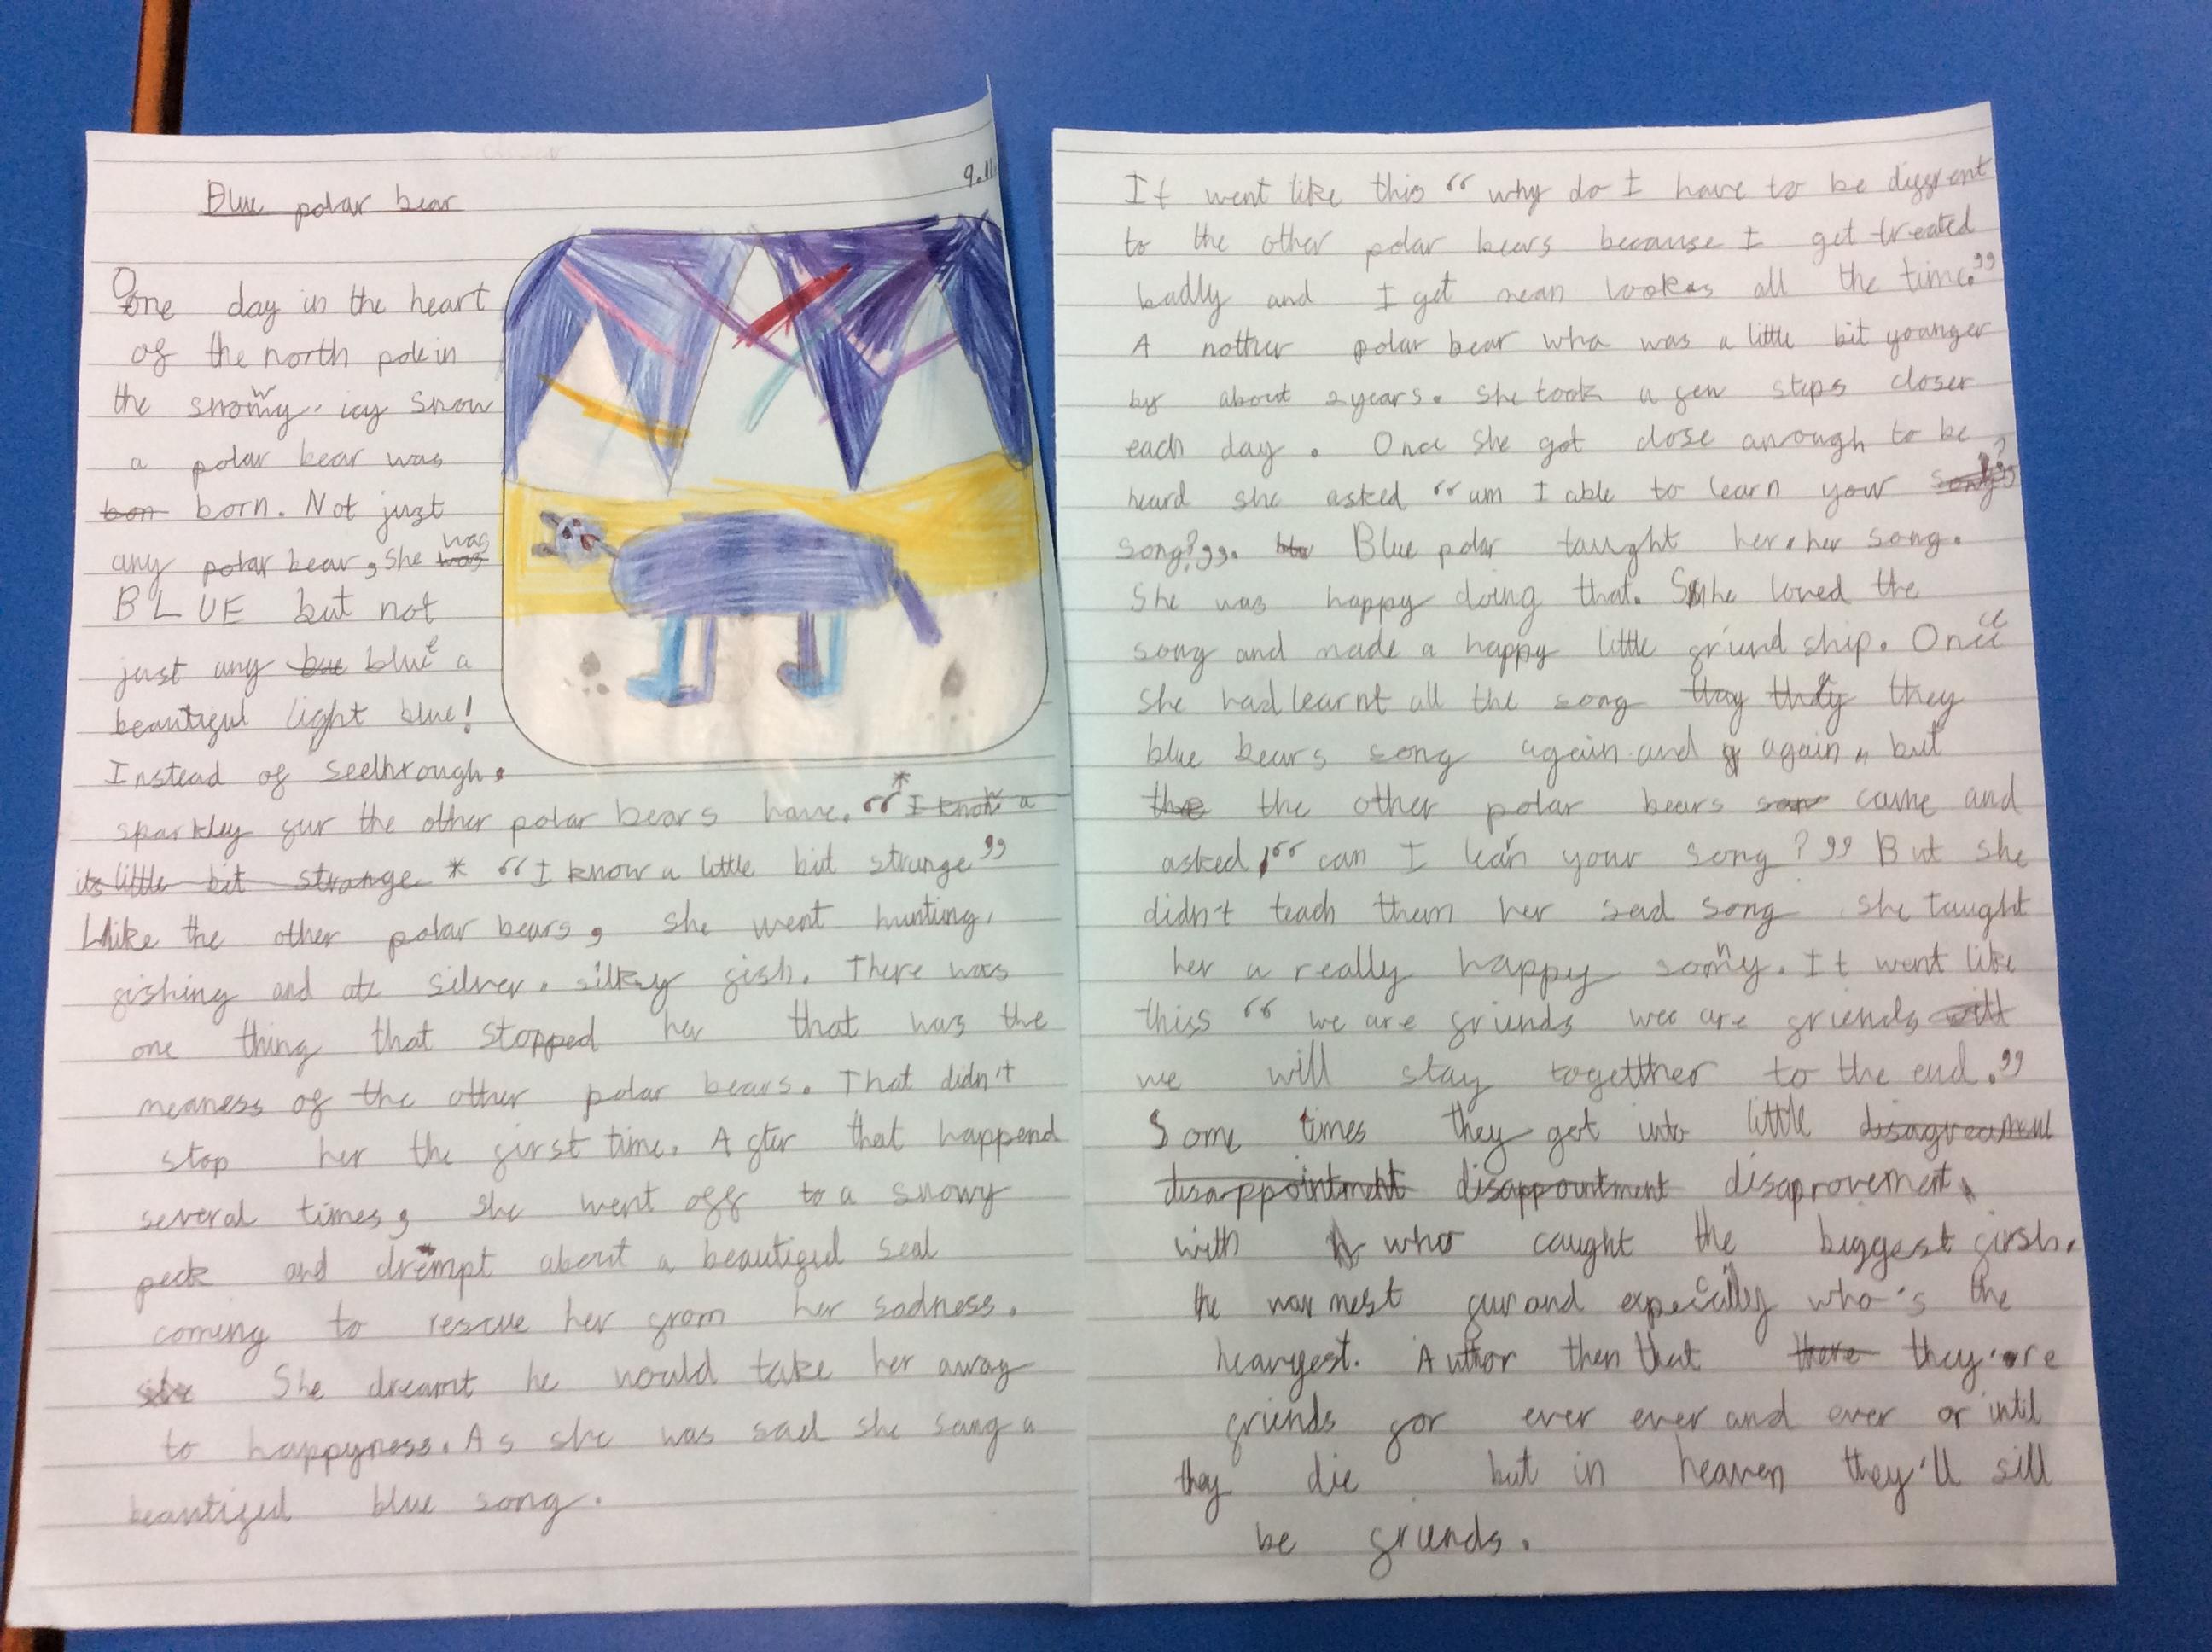 9.11
Blue polar bear
One day in the heart
of the north pole in
the snowy. icy snow
a polar bear was
bon born. Not just
any polar bear, she was was
BLUE but not
just any bue blue a
beautiful light blue!
Instead of seethrough.
sparkley fur the other polar bears have. “* I know a
its little bit strange * “I know a little bit strange”
Like the other polar bears, she went hunting,
fishing and ate silver. silky fish. There was
one thing that stopped her that was the
meaness of the other polar bears. That didn't
stop her the first time. After that happend
several times, she went off to a snowy
peck and drempt about a beautiful seal
coming to rescue her from her sadness.
she She dreamt he would take her away
to happyness. As she was sad she sang a
beautifed blue song.
It went like this “ why do I have to be diffrent
to the other polar bears because I get treated
badly and I get mean lookes all the time.”
A nother polar bear wha was a little bit younger
by about 2 years. She took a few steps closer
each day. Once she got close anough to be
heard she asked “am I able to learn your song?”
song?”. Blue polar taught her her song.
She was happy doing that. She loved the
song and made a happy little friend ship. Once
she had learnt all the song thay they they
blue bears song again and again, but
the the other polar bears saw came and
asked “ can I learn your song?” But she
didn't teach them her sad song she taught
her a really happy sonny. It went like
thiss “ we are friends wee are friends will
we will stay togetther to the end.”
Some times they get into little disagreament
disappointment disappointment disaprovement
with who caught the biggest firsh.
the warmest fur and expecially who's the
heavyest. Author then that there they're
friends for ever ever and ever or intil
they die. but in heaven they'll sill
be friends.